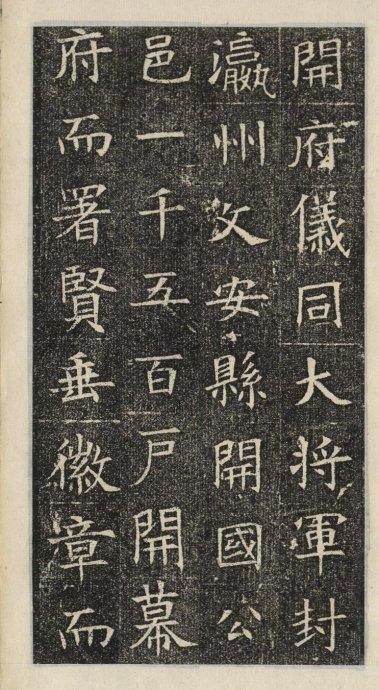 開府儀同大将軍封
瀛州文安縣開國公
邑一千五百戸開幕
府而署賢垂徽章而